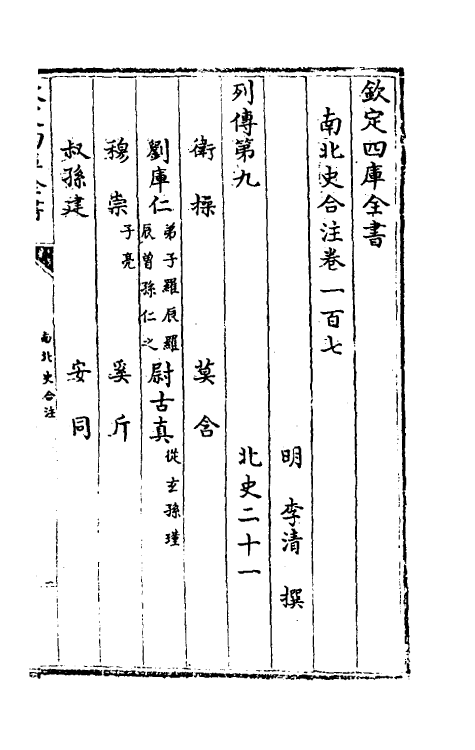 欽定四庫全書
南北史合注卷一百七
明 李清 撰
列傳第九 北史二十一
衛操 莫含
劉庫仁 弟子羅辰 羅辰曾孫仁之 尉古真 從玄孫瑾
穆崇 子亮 奚斤
叔孫建 安同
南北史合注
一